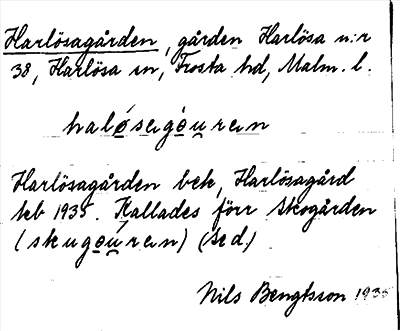 Harlösagården, gården Harlösa n:r
38, Harlösa sn, Frosta hd, Malm. l.
halo̱segè̱u̱ren
Harlösagården bek, Harlösagård
tkb 1935. Kallades förr Skogården
(skuge̱ú̱ren) (sed.)
Nils Bengtsson 1935